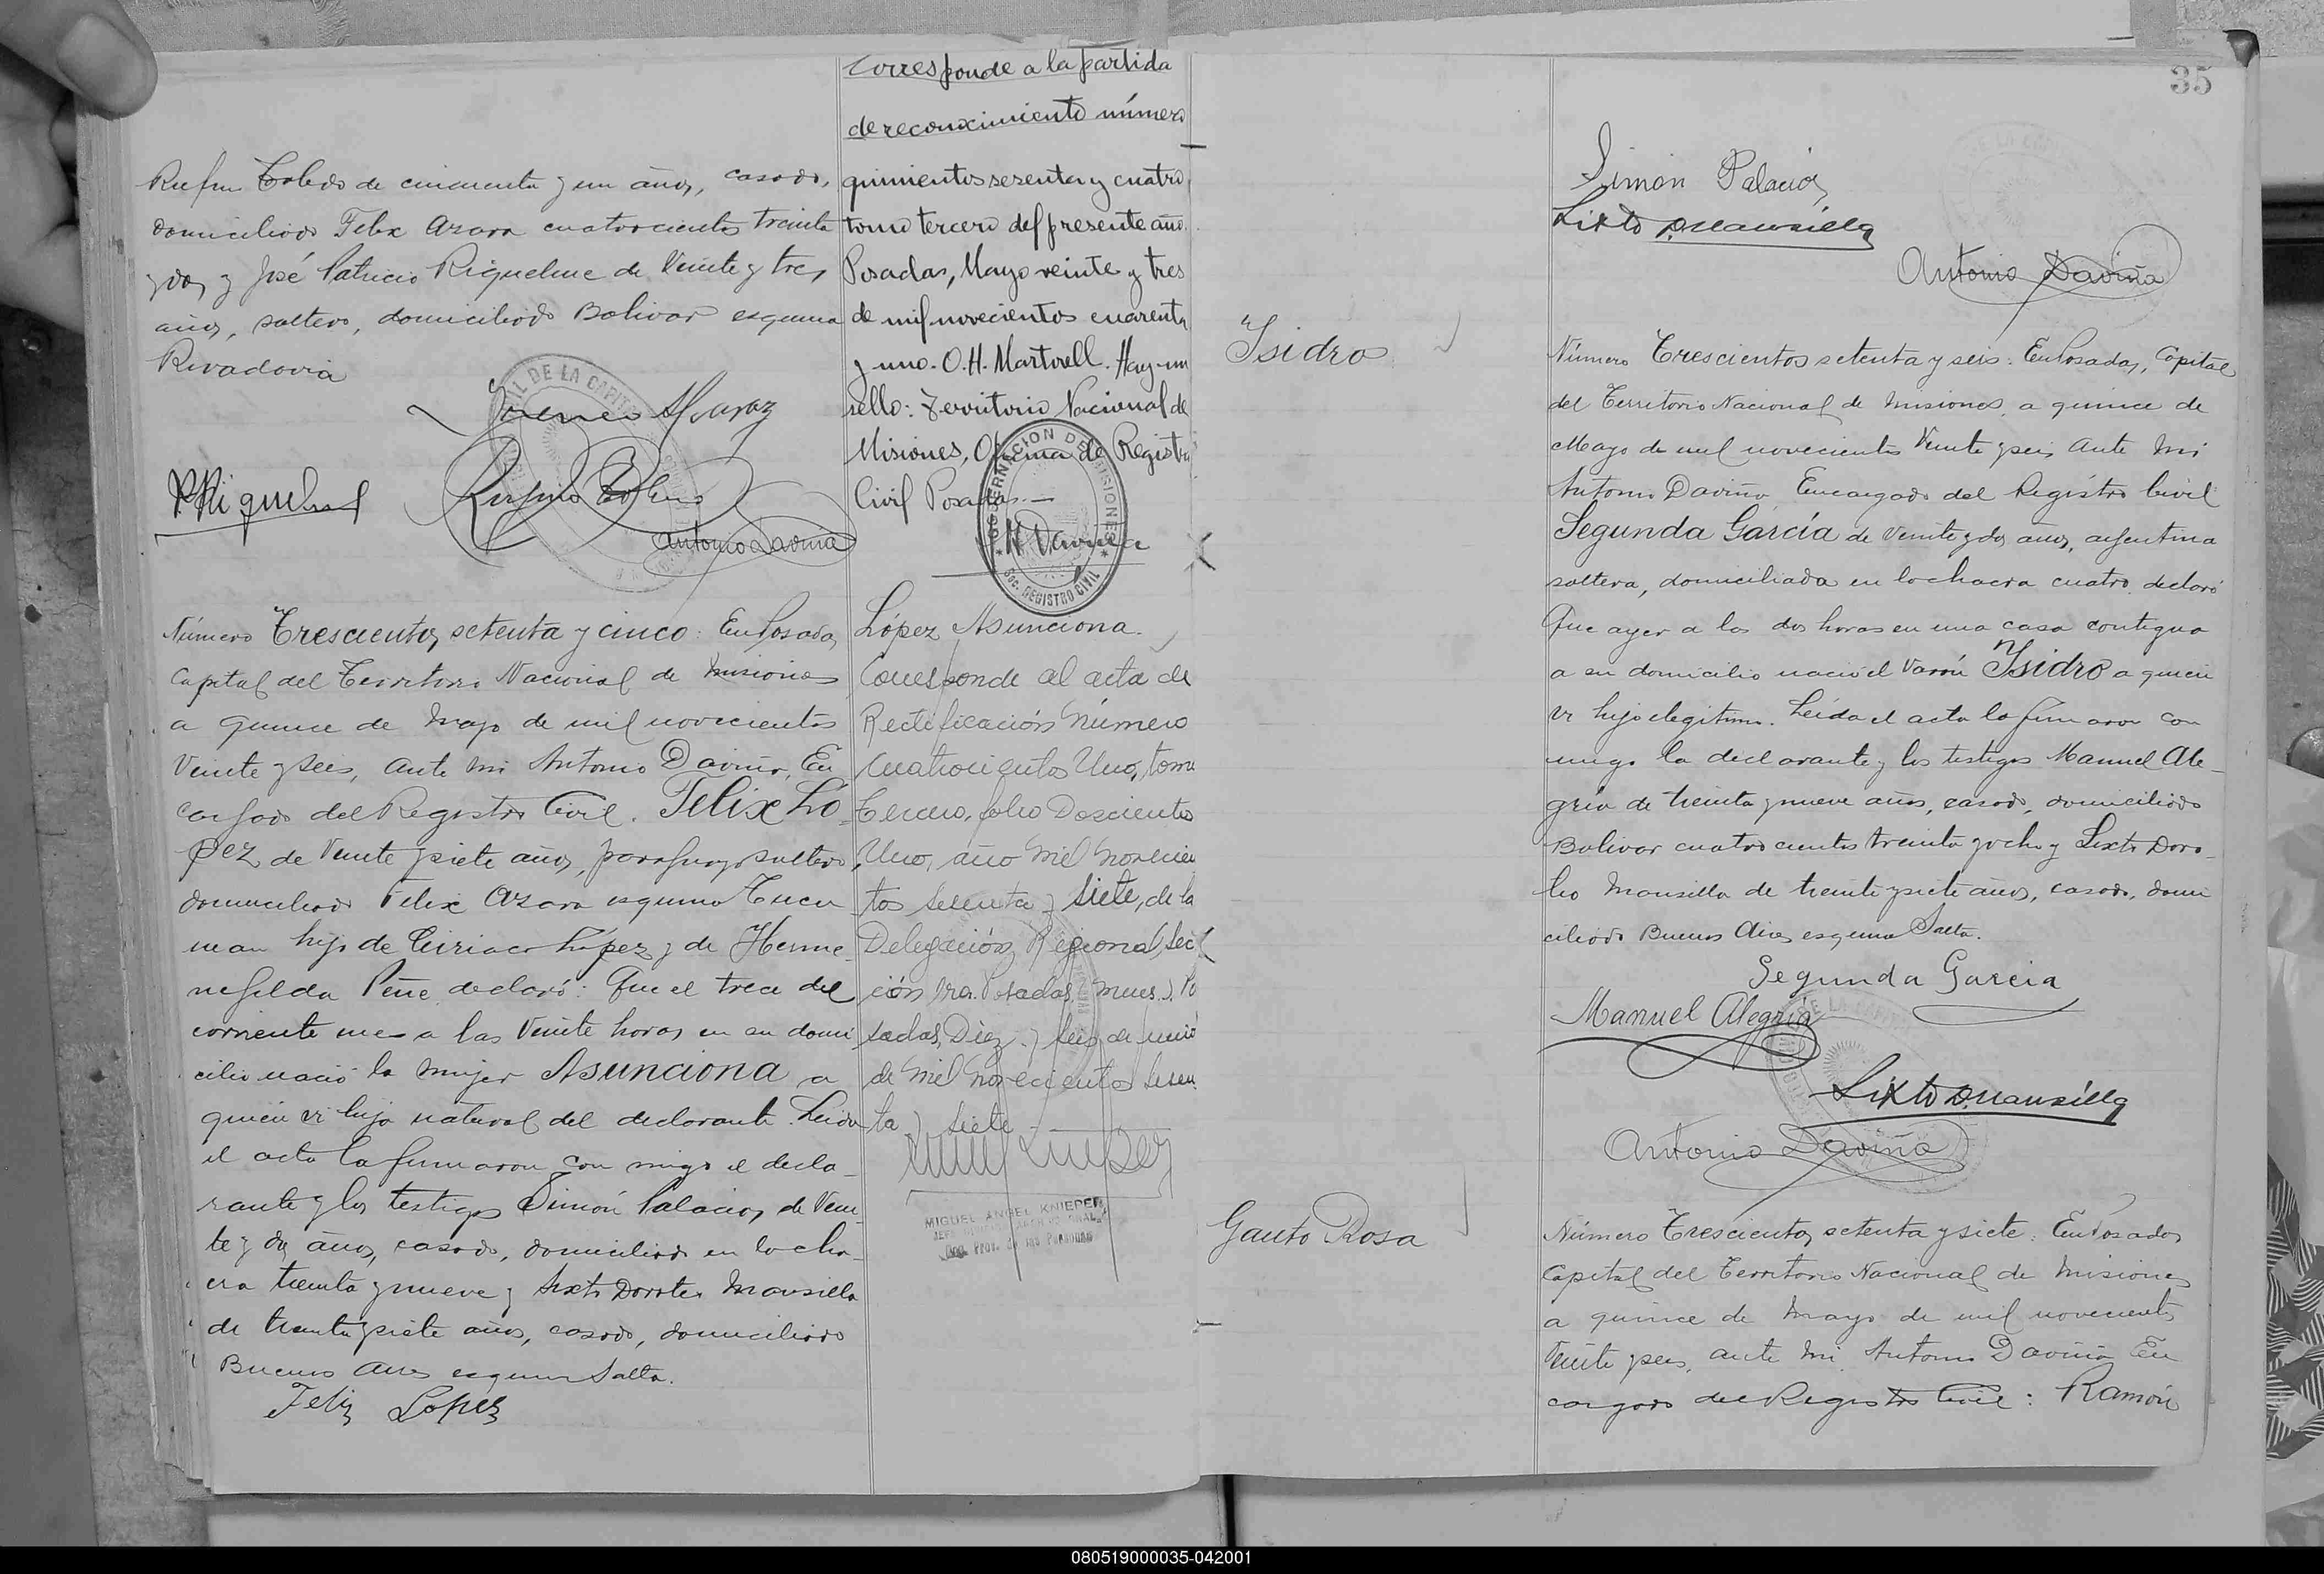 Rufino Toledo de cincuenta y un años, casado,
domiciliado Felix Azara cuatrocientos treinta
y dos y José Patricio Riquelme de Veinte y tres
años, soltero, domiciliado Bolivar esquina
Rivadavia
Rufino Toledo
Antonio Daviña
Corresponde a la partida
de reconocimiento número
quinientos sesenta y cuatro
tomo tercero del presente año.
Posadas, Mayo veinte y tres
de mil novecientos cuarenta
y uno. O.H. Martorell. Hay un
sello: Territorio Nacional de
Misiones, Oficina de Registro
Civil Posadas.—
GOBERNACION DE MISIONES
REGISTRO CIVIL
Número Trescientos setenta y cinco: En Posadas,
Capital del Territorio Nacional de Misiones
a quince de Mayo de mil novecientos
Veinte y seis, ante mi Antonio Daviña, En
cargado del Registro Civil. Felix Ló
pez de Veinte y siete años, paraguayo soltero,
domiciliado Felix Azara esquina Tucu
man hijo de Ciriaco López y de Herme
negilda Peñe declaró: Que el trece del
corriente mes a las Veinte horas en su domi
cilio nació la mujer Asunciona a
quien vi hija natural del declarante. Leida
el acta la firmaron con migo el decla-
rante y los testigos Simón Palacios de Vein-
te y dos años, casado, domiciliado en la cha-
cra treinta y nueve y Sixto Doroteo Mansilla
de treinta y siete años, casado, domiciliado
Buenos Aires esquina Salta.
Felix Lopez
López Asunciona.
Corresponde al acta de
Rectificación Número
Cuatrocientos Uno, tomo
Tercero, folio Doscientos
Uno, año Mil Novecien
tos Sesenta y siete, de la
Delegación Regional Sec
ción 1ra. Posadas, Mnes.). Po
sadas, Diez y seis de Junio
de Mil Novecientos Sesen
ta y siete
MIGUEL ANGEL KNIEPER
35
Simón Palacios
Sixto D. Mansilla
Antonio Daviña
Isidro
Número Trescientos setenta y seis: En Posadas, Capital
del Territorio Nacional de Misiones, a quince de
Mayo de mil novecientos Veinte y seis, ante mi
Antonio Daviña Encargado del Registro Civil
Segunda García de Veinte y dos años, argentina
soltera, domiciliada en la chacra cuatro, declaró
Que ayer a las dos horas en una casa contigua
a su domicilio nació el Varón Isidro a quien
vi hijo ilegitimo. Leida el acta la firmaron con
migo la declarante y los testigos Manuel Ale-
gría de treinta y nueve años, casado, domiciliado
Bolivar cuatrocientos treinta y ocho y Sixto Doro-
teo Mansilla de treinta y siete años, casado, domi
ciliado Buenos Aires esquina Salta.
Segunda Garcia
Manuel Alegría
Sixto D. Mansilla
Antonio Daviña
Gauto Rosa
Número Trescientos setenta y siete: En Posadas
Capital del Territorio Nacional de Misiones
a quince de Mayo de mil novecientos
Veinte y seis, ante mi Antonio Daviña En
cargado del Registro Civil: Ramón
080519000035-042001